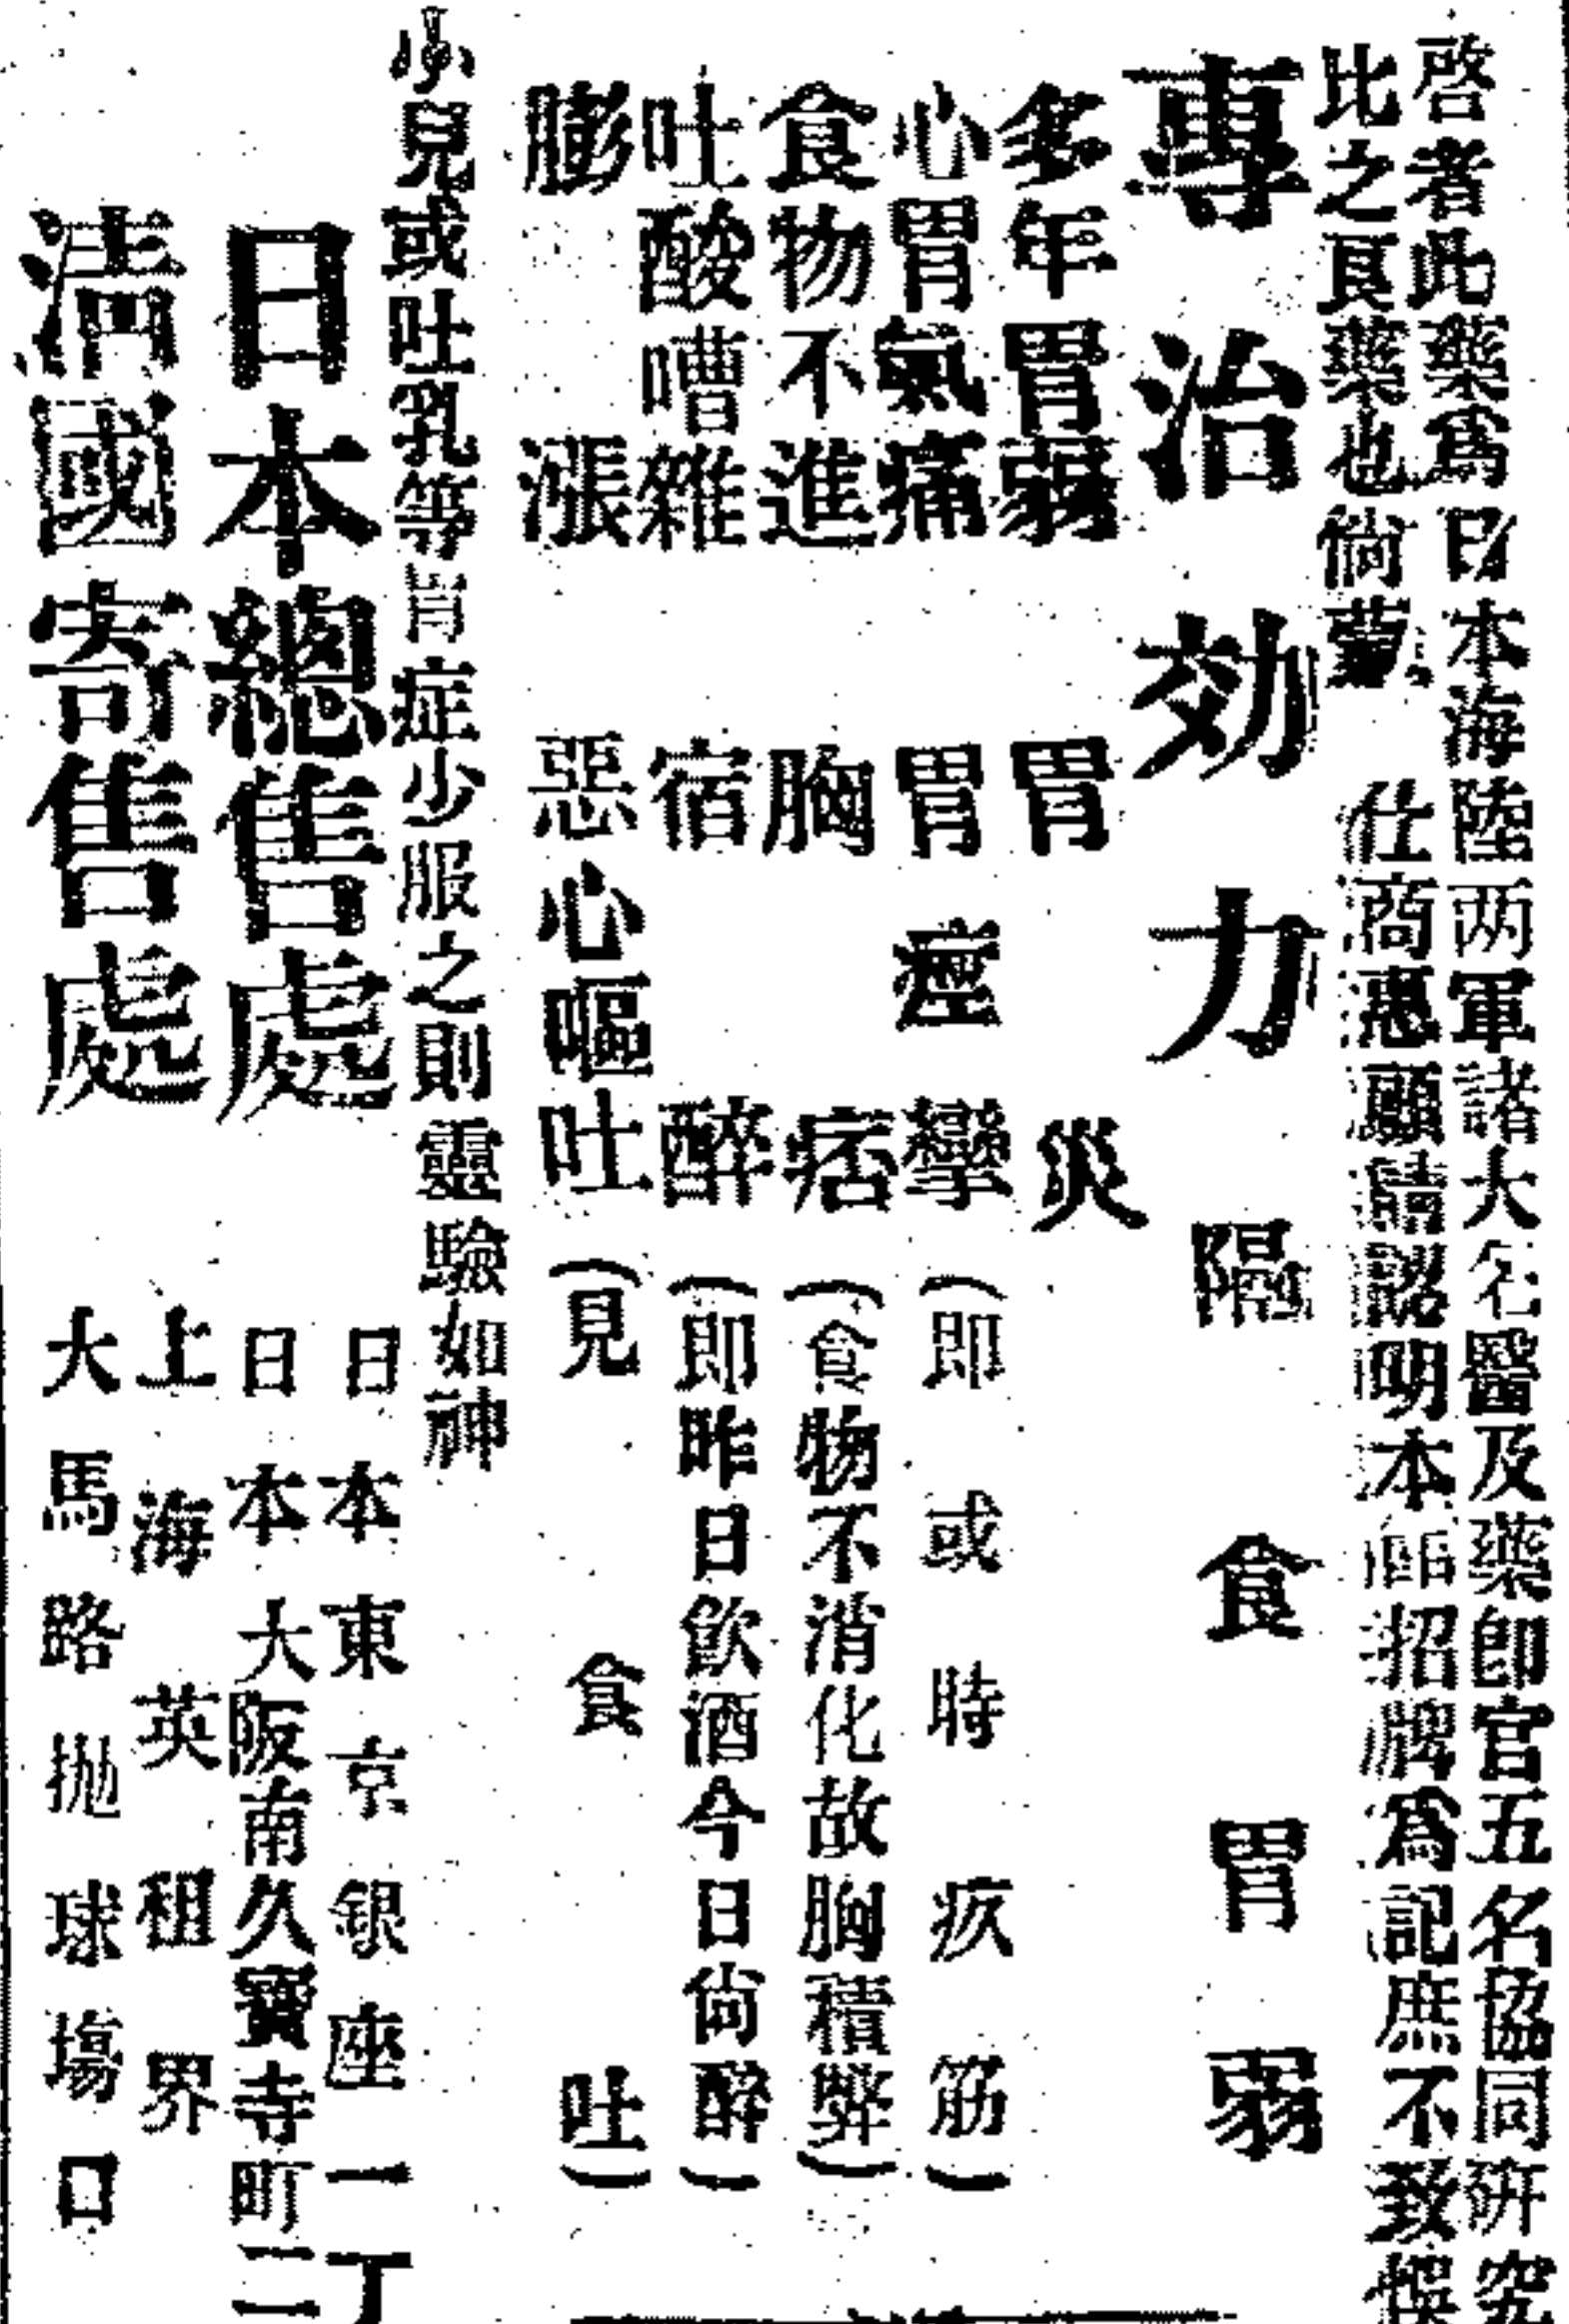 啓者此藥爲日本海陸两軍諸大名醫及藥卽官五名協同硏究
比之良藥也倘蒙 仕商惠顧請認明本舖招牌爲記庶不致悞
專治効力 隔食胃弱
多年胃弱 胃 災
心胃氣痛 胃痙攣(即或時疚筋)
食物不進 胸痞(食物不消化故胸積弊)
吐酸嘈雜 宿醉(即昨日飮酒今日尙醉)
膨漲 惡心嘔吐(見食吐)
小兒或吐乳等胃症少服之則靈驗如神
日本總售處 日本東京銀座一丁
日本大阪南久寶寺町二
清國寄售處 上海英租界
大馬路拋球塲口